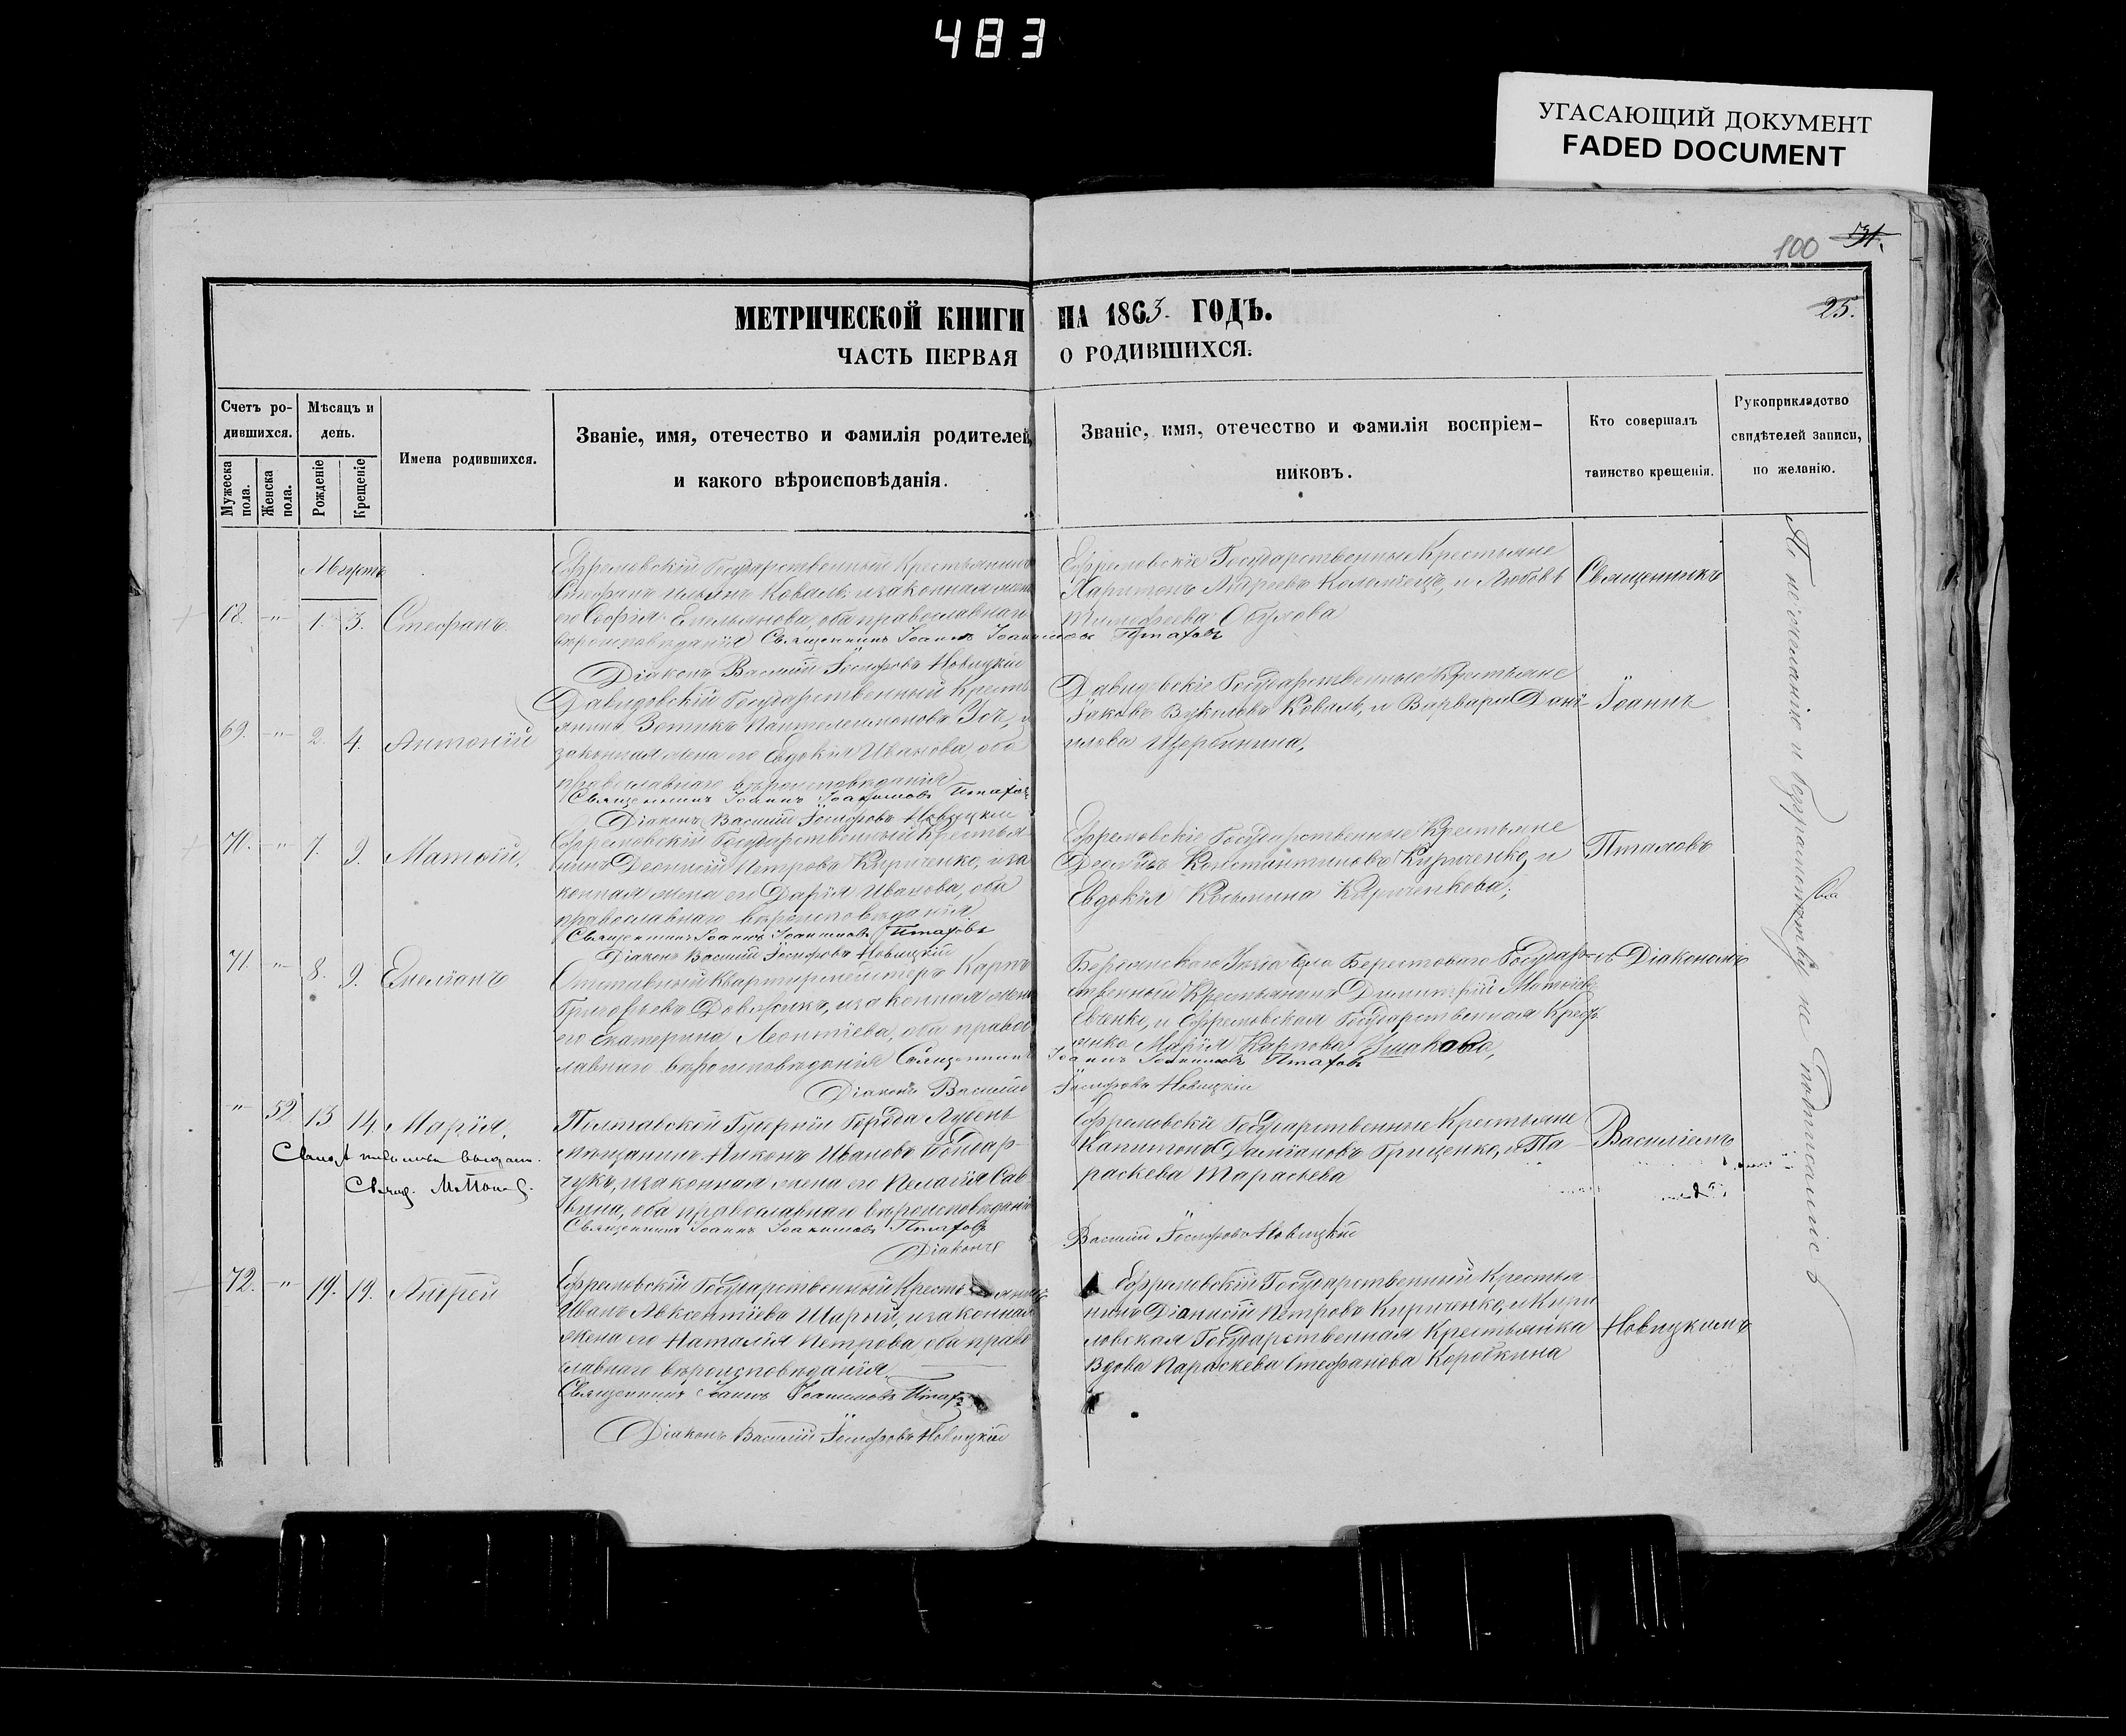 483
УГАСАЮЩИЙ ДОКУМЕНТ
FADED DOCUMENT
100
25.
МЕТРИЧЕСКОЙ КНИГИ НА 1863 ГОДЪ.
ЧАСТЬ ПЕРВАЯ О РОДИВШИХСЯ.
Счетъ родившихся.
Мужеска пола.
Женска пола.
Мѣсяцъ и день.
Рожденіе
Крещеніе
Имена родившихся.
Званіе, имя, отечество и фамилія родителей,
и какого вѣроисповѣданія.
Званіе, имя, отечество и фамилія воспріем-
никовъ.
Кто совершалъ
таинство крещенія.
Рукоприкладство
свидѣтелей записи,
по желанію.
Мартъ
68. -"- 1. 3. Стефанъ
Ефремовскій Государственный Крестьянинъ
Стефанъ Ильинъ Коваль и законная жена
его Софія Емельянова, оба православнаго
вѣроисповѣданія Священникъ Іоаннъ Іоакимовъ Птаховъ
Діаконъ Василій Іосифовъ Новицкій
Ефремовскіе Государственные Крестьяне
Харитонъ
и Любовь
Тимофеева Обухова
Священникъ
69. -"- 2. 4. Антоній
Давидовскій Государственный Кресть-
янинъ Зотикъ Пантелеимоновъ
законная жена его Евдокія Иванова оба
православнаго вѣроисповѣданія
Священникъ Іоаннъ Іоакимовъ Птаховъ
Діаконъ Василій Іосифовъ Новицкій
Давидовскіе Государственные Крестьяне
Іаковъ Вуколовъ Коваль, и Варвара Дані-
илова Щербинина,
Іоаннъ
70. -"- 7. 9. Матѳій,
Ефремовскій Государственный Крестья-
нинъ Діонисій Петровъ Кириченко, и за
конная жена его Дарія Иванова, оба
православнаго вѣроисповѣданія
Священникъ Іоаннъ Іоакимовъ Птаховъ
Діаконъ Василій Іосифовъ Новицкій
Ефремовскіе Государственные Крестьяне
Константиновъ Кириченко, и
Евдокія Косьмина Кириченкова;
Птаховъ
71. -"- 8. 9. Емеліанъ
Отставный Квартирмейстеръ Карпъ
Григорьевъ Довжикъ, и законная жена
его Екатерина Леонтіева, оба правос
лавнаго вѣроисповѣданія Священникъ Іоаннъ Іоакимовъ Птаховъ
Діаконъ Василій Іосифовъ Новицкій
Бердянскаго Уѣзда Села Берестоваго Государ-
ственный Крестьянинъ Димитрій Матѳіев
Евченко, и Ефремовская Государственная Кресть
янка Марія Карпова Ушакова,
съ Діакономъ
-"- 52. 13 14. Марія,
Полтавской Губерніи Города Лубенъ
мѣщанинъ Никонъ Ивановъ Бондар-
чукъ, и законная жена его Пелагія Сав
вина, оба православнаго вѣроисповѣданія
Священникъ Іоаннъ Іоакимовъ Птаховъ
Діаконъ Василій Іосифовъ Новицкій
Ефремовскіи Государственные Крестьяне
Капитонъ Даміановъ Грищенко, и Па-
раскева Тарасьева
Василіемъ
72. -"- 19. 19. Андрей
Ефремовскій Государственный Крестьянинъ
Иванъ Авксентіевъ Шарый, и законная
жена его Наталія Петрова оба право
славнаго вѣроисповѣданія,
Священникъ Іоаннъ Іоакимовъ Птаховъ
Діаконъ Василій Іосифовъ Новицкій
Ефремовскій Государственный Крестья
нинъ Діонисій Петровъ Кириченко, и Кири
ловская Государственная Крестьянка
Вдова Параскева Стефанова Коробкина
Новицкимъ
По нежеланію и безграмотству не подписались